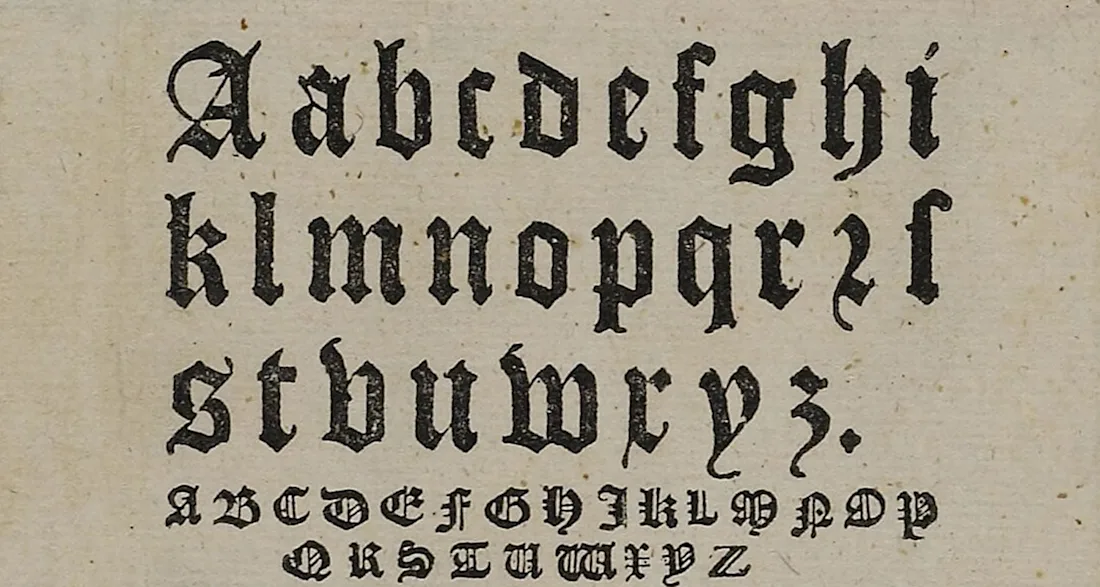 A a b c d e f g h i
k l m n o p q r ꝛ ſ
s t v u w x y z.
A B C D E F G H I K L M N O P
Q R S T U W X Y Z